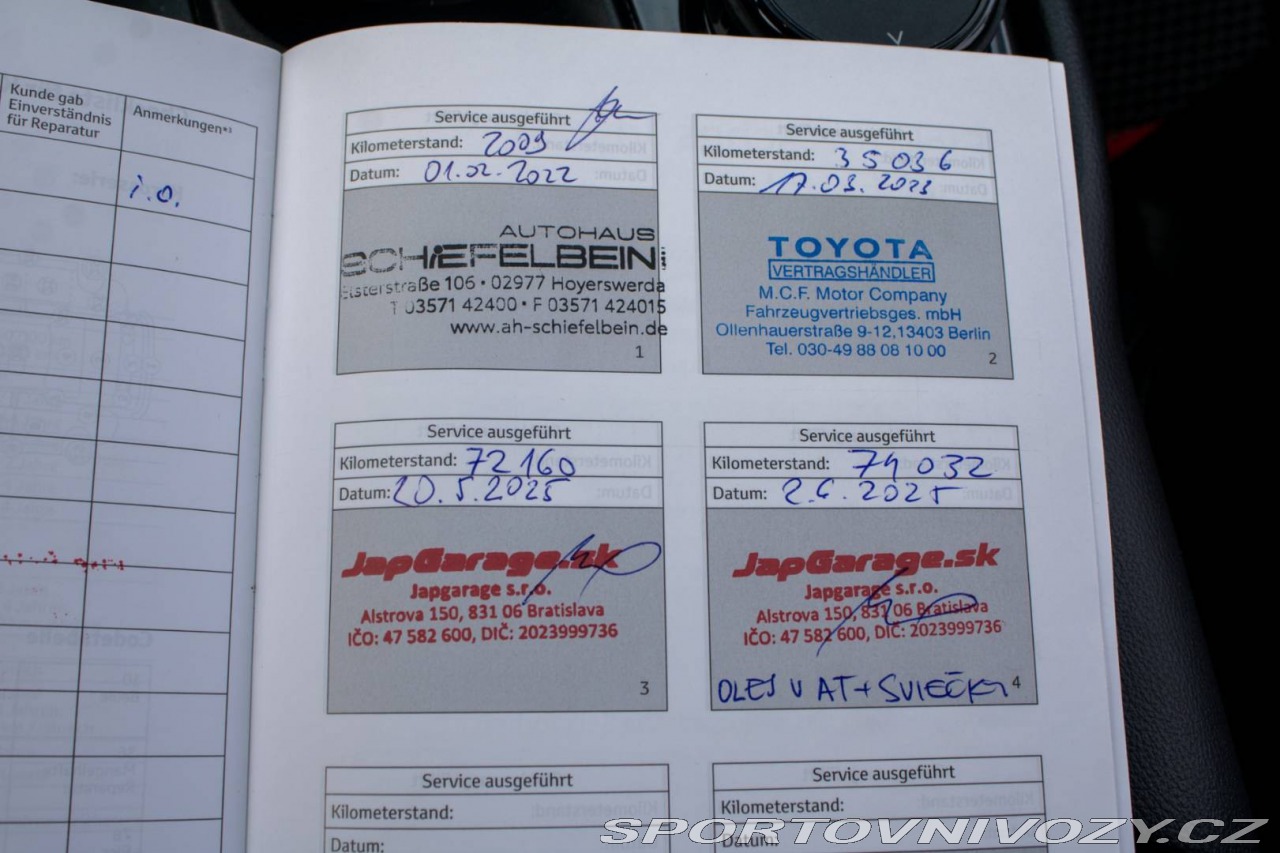 Kunde gab
Einverständnis
für Reparatur
Anmerkungen*³
i.o.
Service ausgeführt
Kilometerstand: 2009
Datum: 01.02.2022
AUTOHAUS
SCHIEFELBEIN
Elsterstraße 106 • 02977 Hoyerswerda
T 03571 42400 • F 03571 424015
www.ah-schiefelbein.de
1
Service ausgeführt
Kilometerstand: 35036
Datum: 17.03.2023
TOYOTA
VERTRAGSHÄNDLER
M.C.F. Motor Company
Fahrzeugvertriebsges. mbH
Ollenhauerstraße 9-12,13403 Berlin
Tel. 030-49 88 08 10 00
2
Service ausgeführt
Kilometerstand: 72160
Datum: 20.5.2025
JapGarage.sk
Japgarage s.r.o.
Alstrova 150, 831 06 Bratislava
IČO: 47 582 600, DIČ: 2023999736
3
Service ausgeführt
Kilometerstand: 74 032
Datum: 2.6.2025
JapGarage.sk
Japgarage s.r.o.
Alstrova 150, 831 06 Bratislava
IČO: 47 582 600, DIČ: 2023999736
OLEJ V AT + SVIEČKY
4
Service ausgeführt
Kilometerstand:
Datum:
Service ausgeführt
Kilometerstand:
Datum:
SPORTOVNIVOZY.CZ